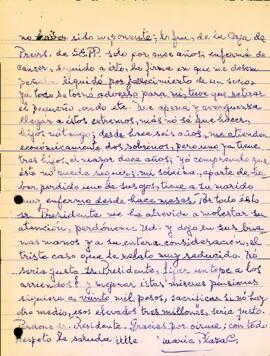 no haber sido imponente; lo fui, de la Caja de
Previs. de EE.PP. solo por once años; enfermé de
cáncer, seguido a esto, la firma en que me desem
peñaba liquidó por fallecimiento de un socio
ya todo se tornó adverso para mí, tuve que retirar
el pequeño Me apena y avergüenza
llegar a estos extremos, más no sé que hacer,
hijos nó tengo; desde hace seis años, me atienden
económicamente dos sobrinos, pero uno ya tiene
tres hijos, el mayor doce años; yo comprendo que
ésto no puede seguir; mi sobrina, aparte de ha
ber perdido uno de sus ojos, tiene a su marido
muy enfermo desde hace meses. Por todo ésto
Sr Presidente me ha atrevido a molestar su
atención, perdóneme Ud. y dejo en sus bue
nas manos y a su entera consideración, el
triste caso que le relato muy reducido. No
sería justo Sr. Presidente, fijar un tope a los
arriendos? y mejorar éstas míseras pensiones
siquiera a veinte mil pesos, sacrificar su
medio, esos elevados tres millones, sería justo.
Presidente. Gracias por oirme, con todo
respeto le saluda Atte. María Plaza C.